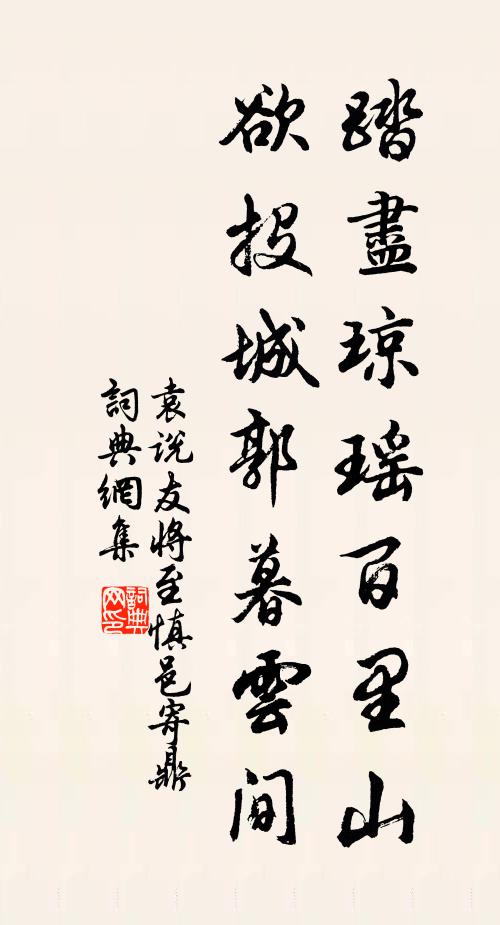 踏盡琼瑶百里山
欲投城郭暮雲間
袁说友将至慎邑寄鼎
詞典網集
詞典
网印